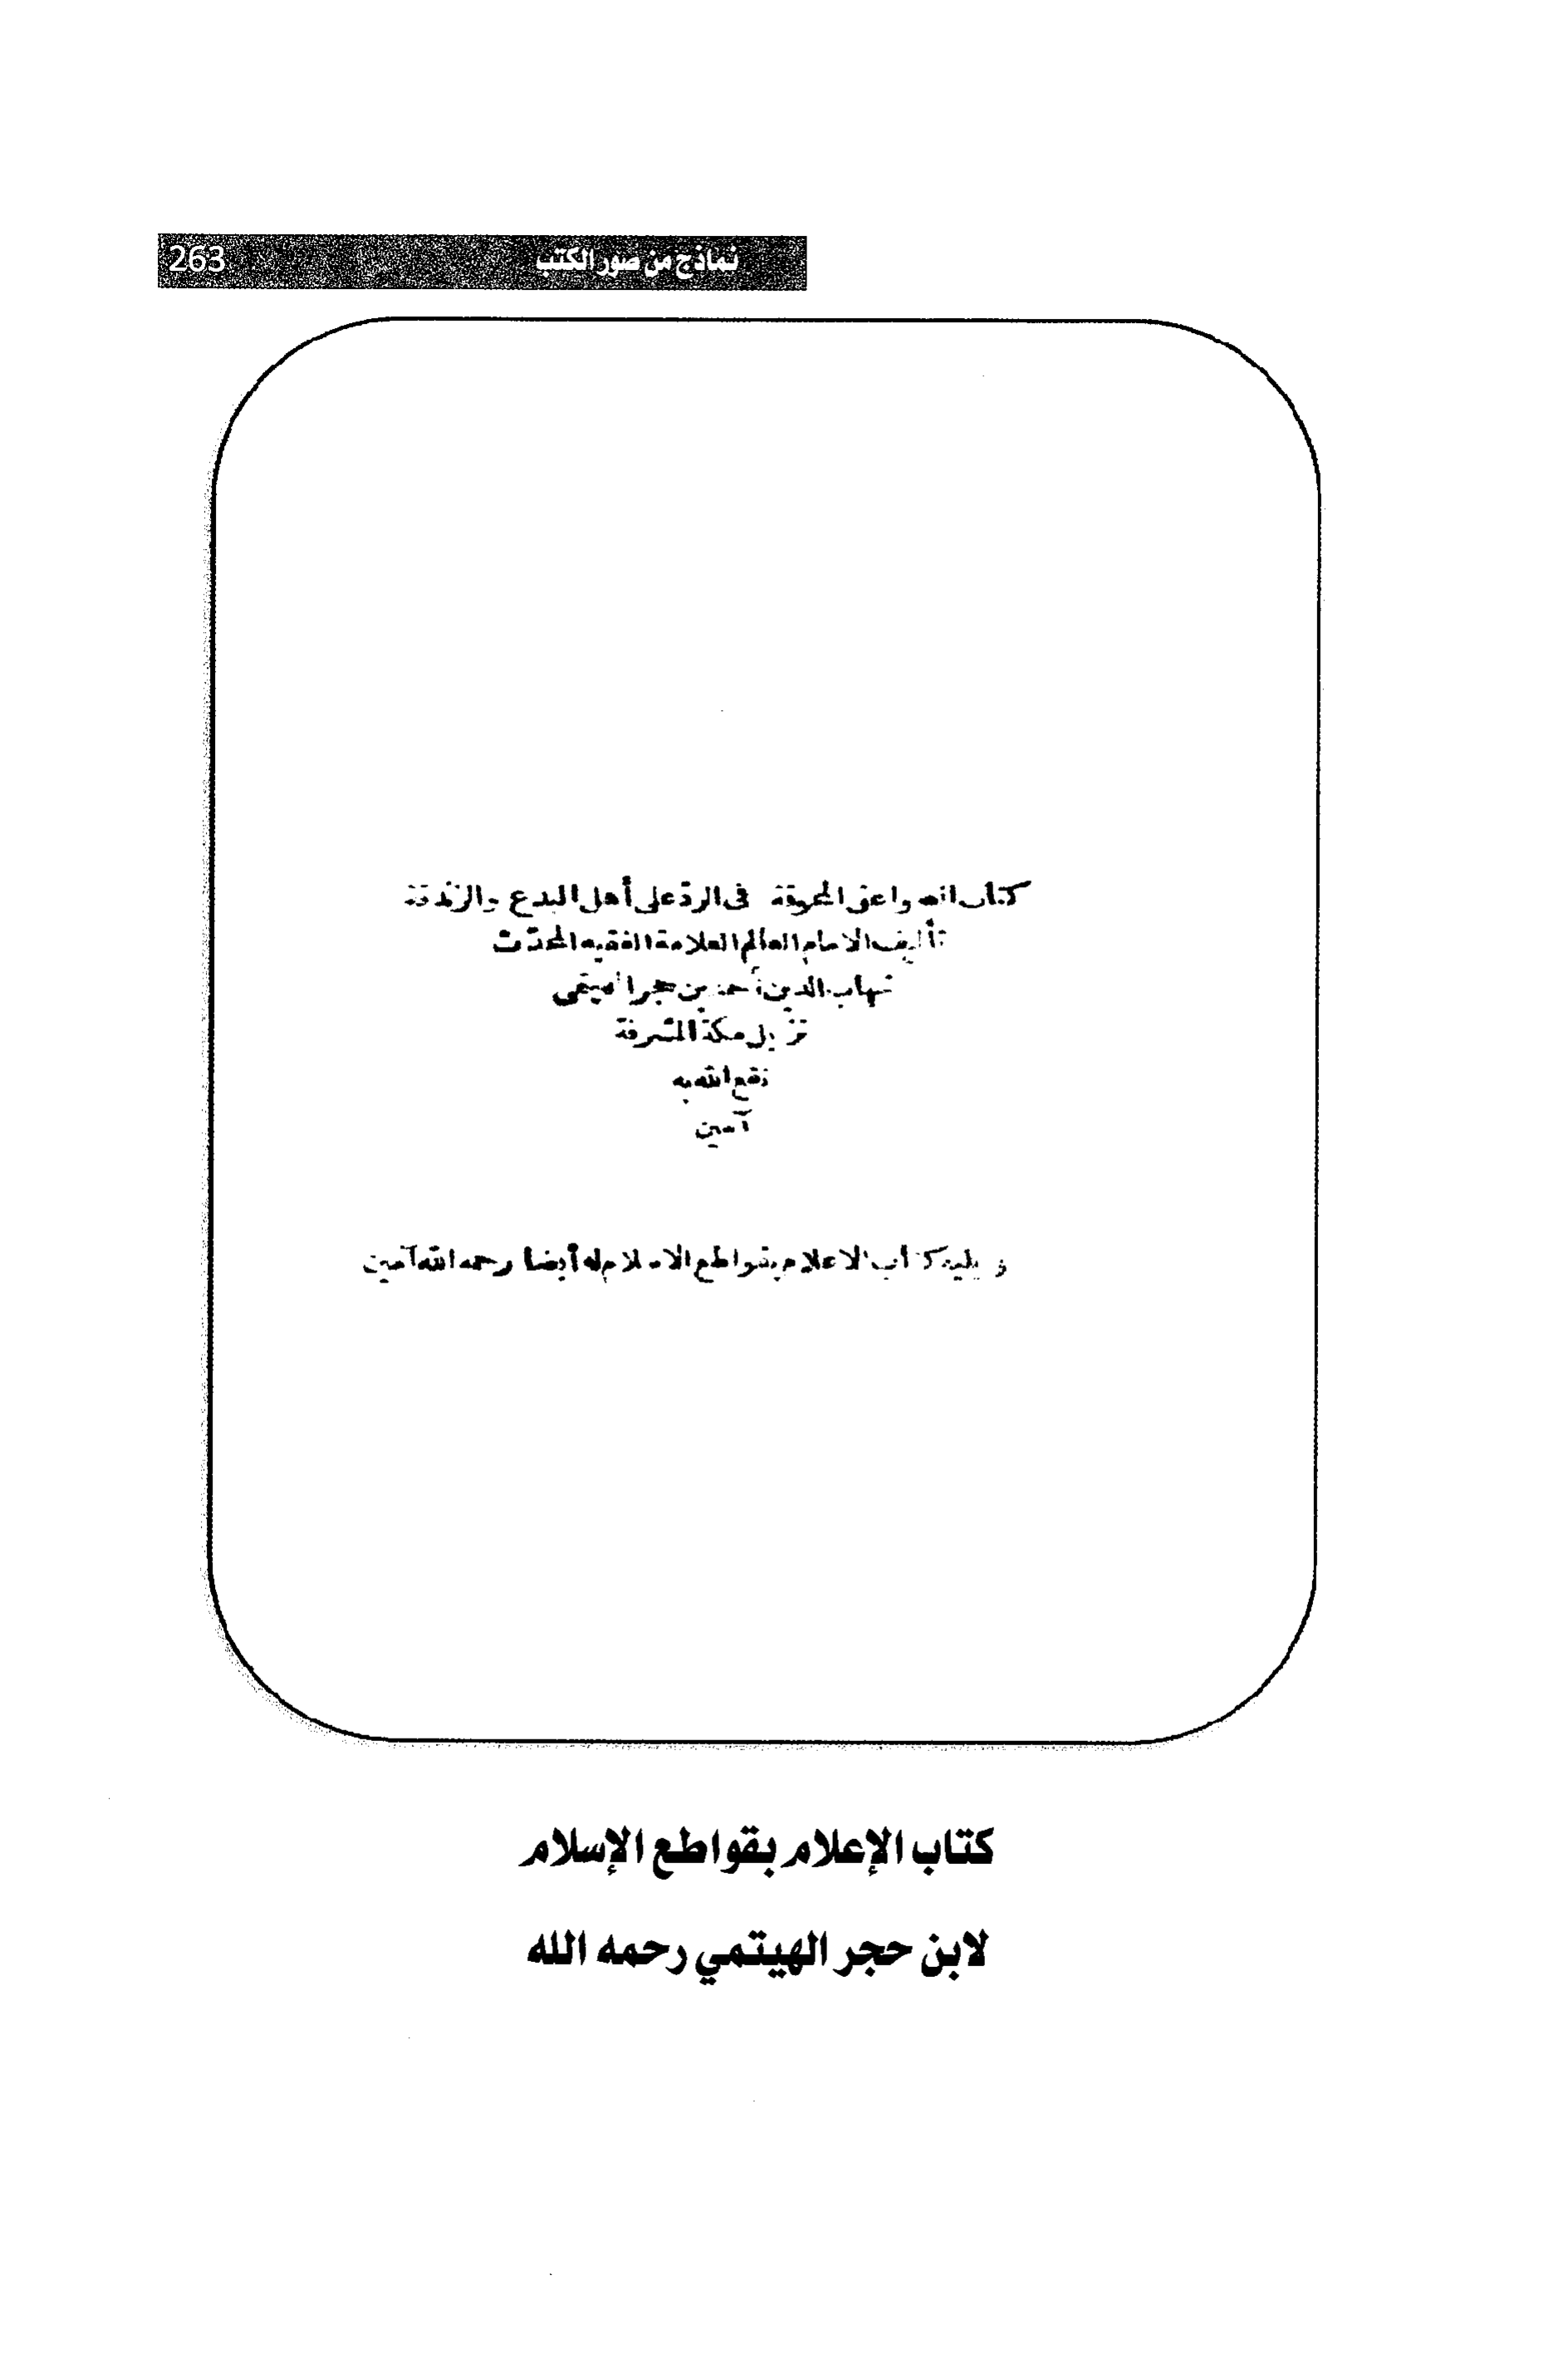 نماذج من صور الكتب 263
كتاب الصواعق المحرقة فى الردّ على أهل البدع والزندقة
تأليف الامام العالم العلامة الفقيه المحدّث
شهاب الدين أحمد بن حجر الهيتمى
نزيل مكة المشرفة
نفع الله به
آمين
و يليه كتاب الاعلام بقواطع الاسلام له أيضا رحمه الله آمين
كتاب الإعلام بقواطع الإسلام
لابن حجر الهيتمي رحمه الله